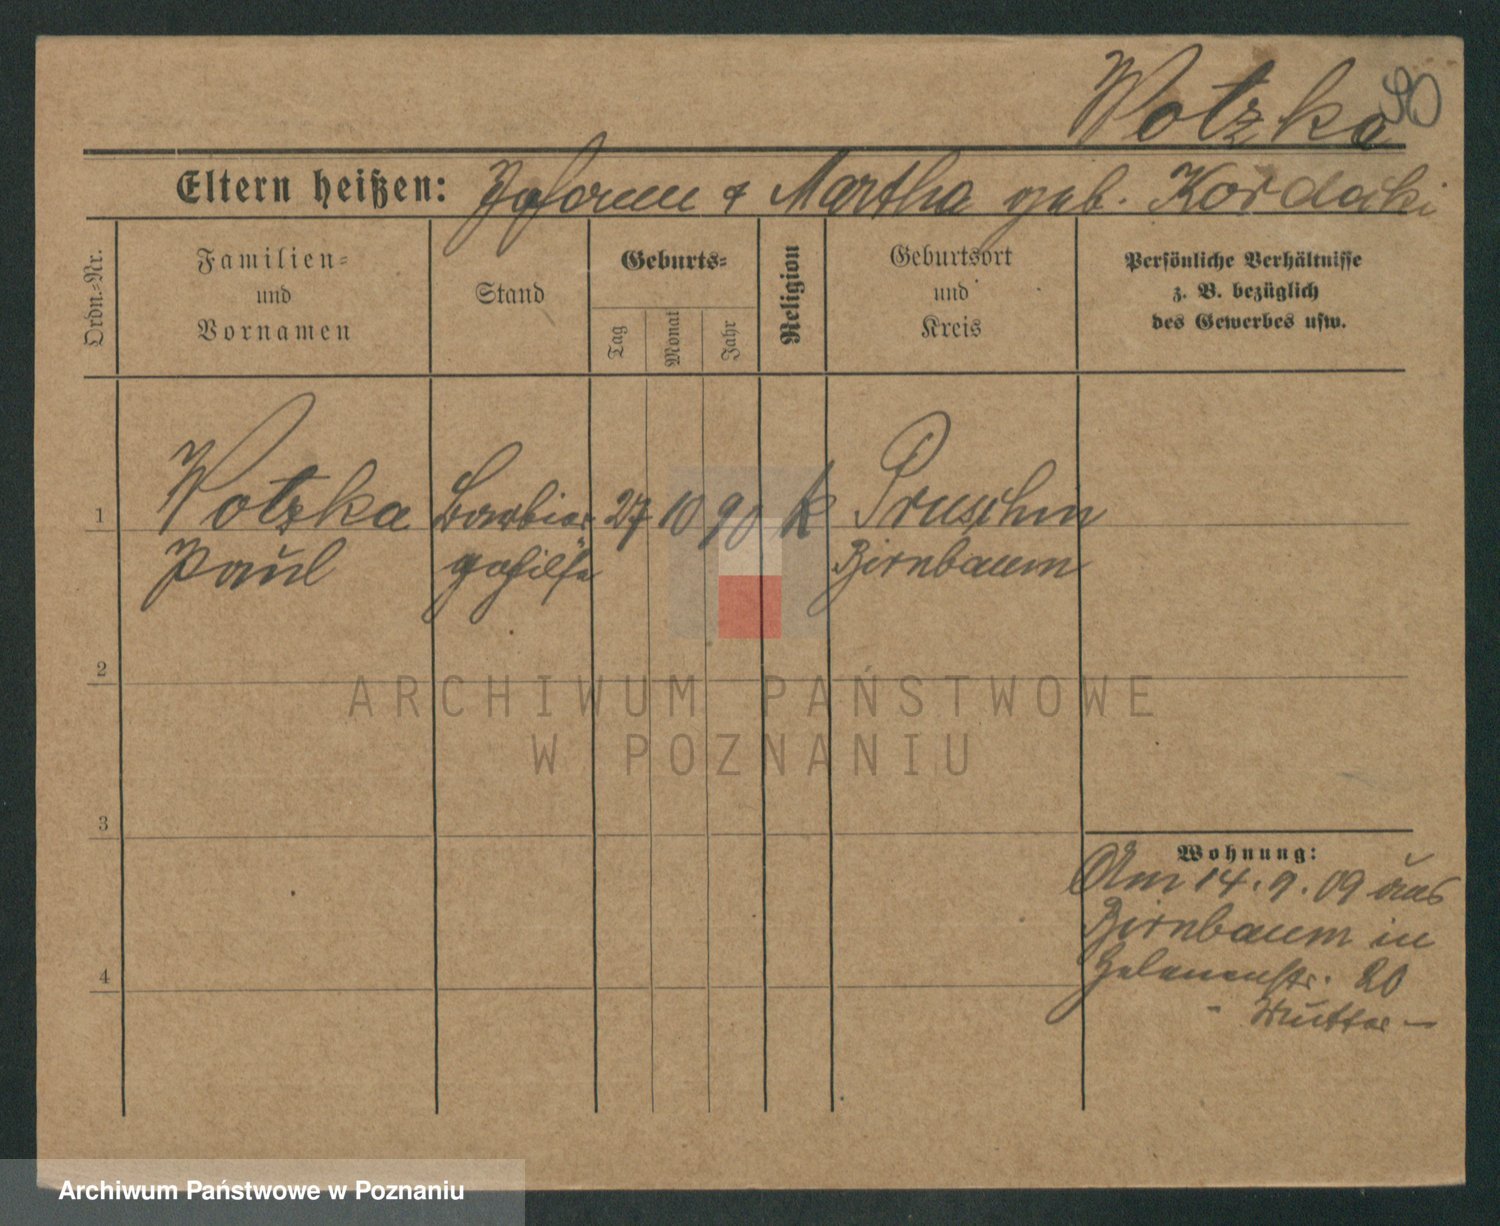 Wotzka
90
Eltern heißen: Johann & Martha geb. Kordacki
Ordn.-Nr.
Familien-
und
Vornamen
Stand
Geburts-
Tag
Monat
Jahr
Religion
Geburtsort
und
Kreis
Persönliche Verhältnisse
z. B. bezüglich
des Gewerbes usw.
1
Wotzka Barbier 27 10 90 k Pruschim
Paul gehilfe Birnbaum
2
3
4
Wohnung:
Am 14.9.09 aus
Birnbaum in
Helenenstr. 20
- Mutter -
ARCHIWUM PAŃSTWOWE
W POZNANIU
Archiwum Państwowe w Poznaniu